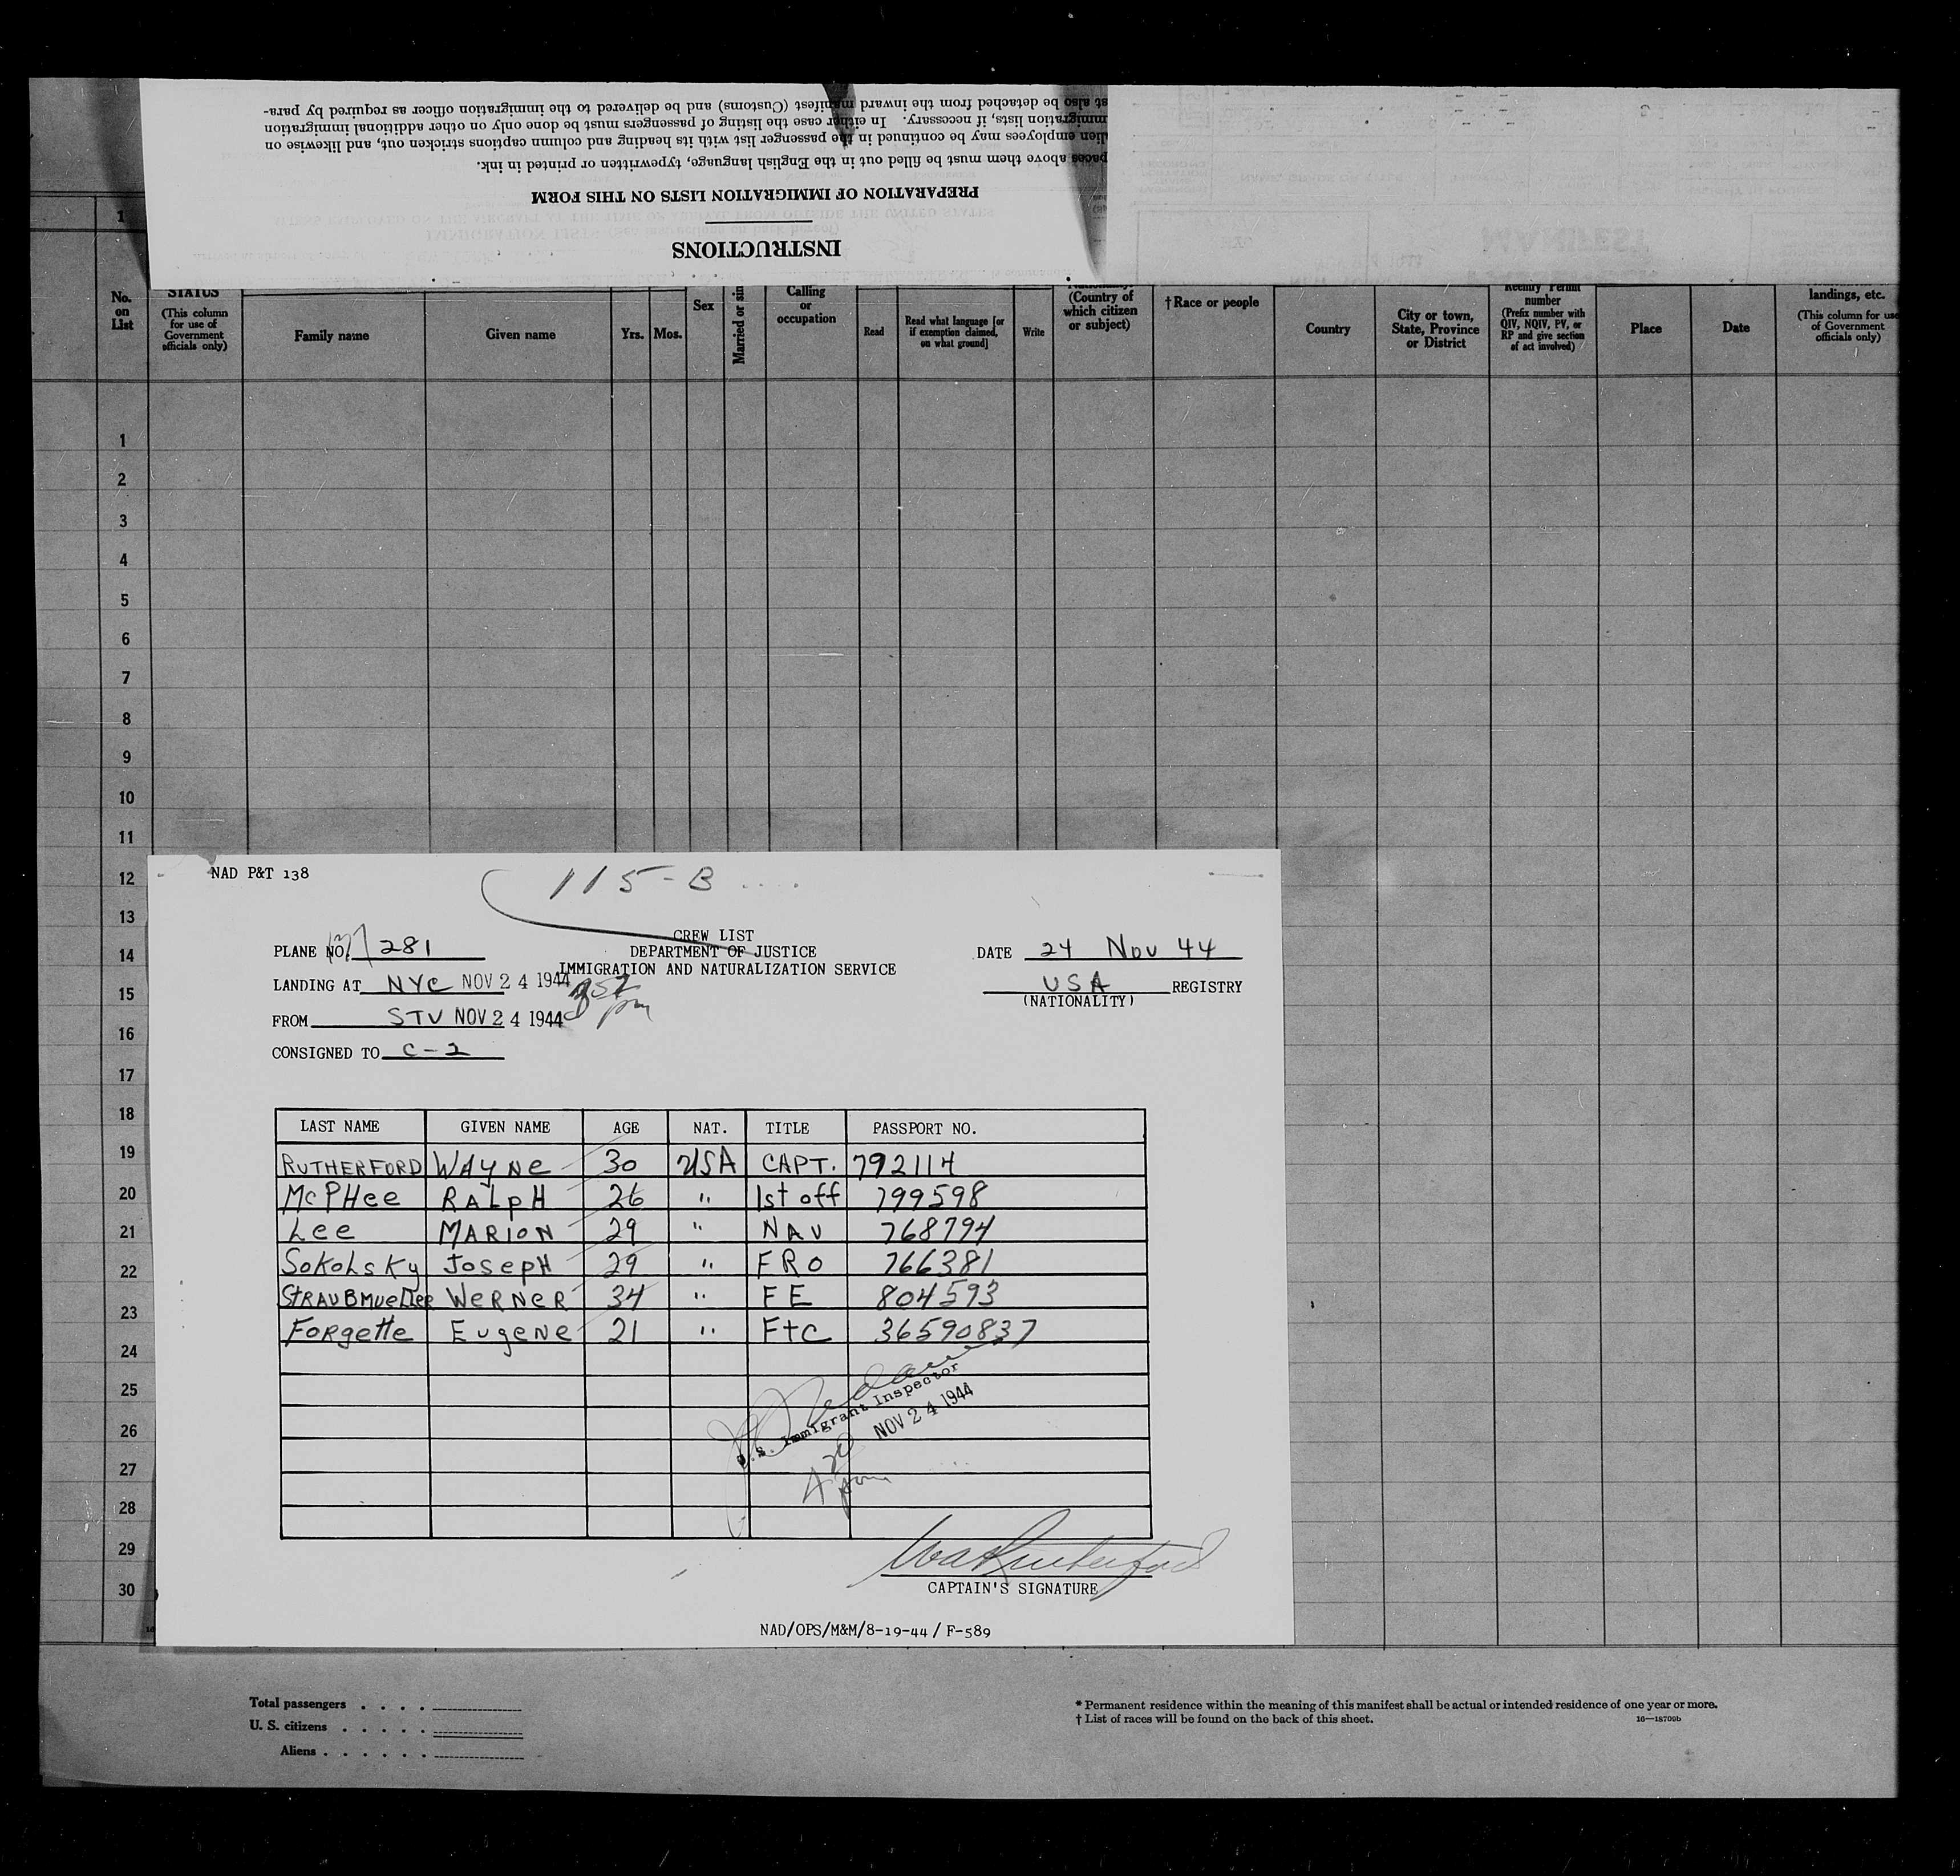 INSTRUCTIONS
PREPARATION OF IMMIGRATION LISTS ON THIS FORM
paces above them must be filled out in the English language, typewritten or printed in ink.
lien employees may be continued in the passenger list with its heading and column captions stricken out, and likewise on
immigration lists, if necessary. In either case the listing of passengers must be done only on other additional immigration
st also be detached from the inward manifest (Customs) and be delivered to the immigration officer as required by para-
1
No. on List
STATUS
(This column for use of Government officials only)
Family name
Given name
Yrs.
Mos.
Sex
Married or sin
Calling or occupation
Read
Read what language [or if exemption claimed, on what ground]
Write
(Country of which citizen or subject)
†Race or people
Country
City or town, State, Province or District
Reentry Permit number
(Prefix number with QIV, NQIV, PV, or RP and give section of act involved)
Place
Date
landings, etc.
(This column for use of Government officials only)
1
2
3
4
5
6
7
8
9
10
11
12
13
14
15
16
17
18
19
20
21
22
23
24
25
26
27
28
29
30
NAD P&T 138
115-B
CREW LIST
PLANE NO. 281
DEPARTMENT OF JUSTICE
DATE 24 Nov 44
IMMIGRATION AND NATURALIZATION SERVICE
LANDING AT NYC NOV 24 1944
USA REGISTRY
(NATIONALITY)
FROM STV NOV 24 1944
pm
CONSIGNED TO C-2
LAST NAME GIVEN NAME AGE NAT. TITLE PASSPORT NO.
RUTHERFORD WAYNe 30 USA CAPT. 792114
McPHee RALpH 26 " 1st off 799598
Lee MARION 29 " NAV 768794
SokoLsky JosepH 29 " FRO 766381
STRAUBMUeller WeRNeR 34 " FE 804593
Forgette EugeNe 21 " FtC 36590837
U.S. Immigrant Inspector
NOV 24 1944
4 20 pm
Wa Rutherford
CAPTAIN'S SIGNATURE
NAD/OPS/M&M/8-19-44/ F-589
Total passengers . . . .
U. S. citizens . . . . .
Aliens . . . . . .
* Permanent residence within the meaning of this manifest shall be actual or intended residence of one year or more.
† List of races will be found on the back of this sheet.
16—18709b